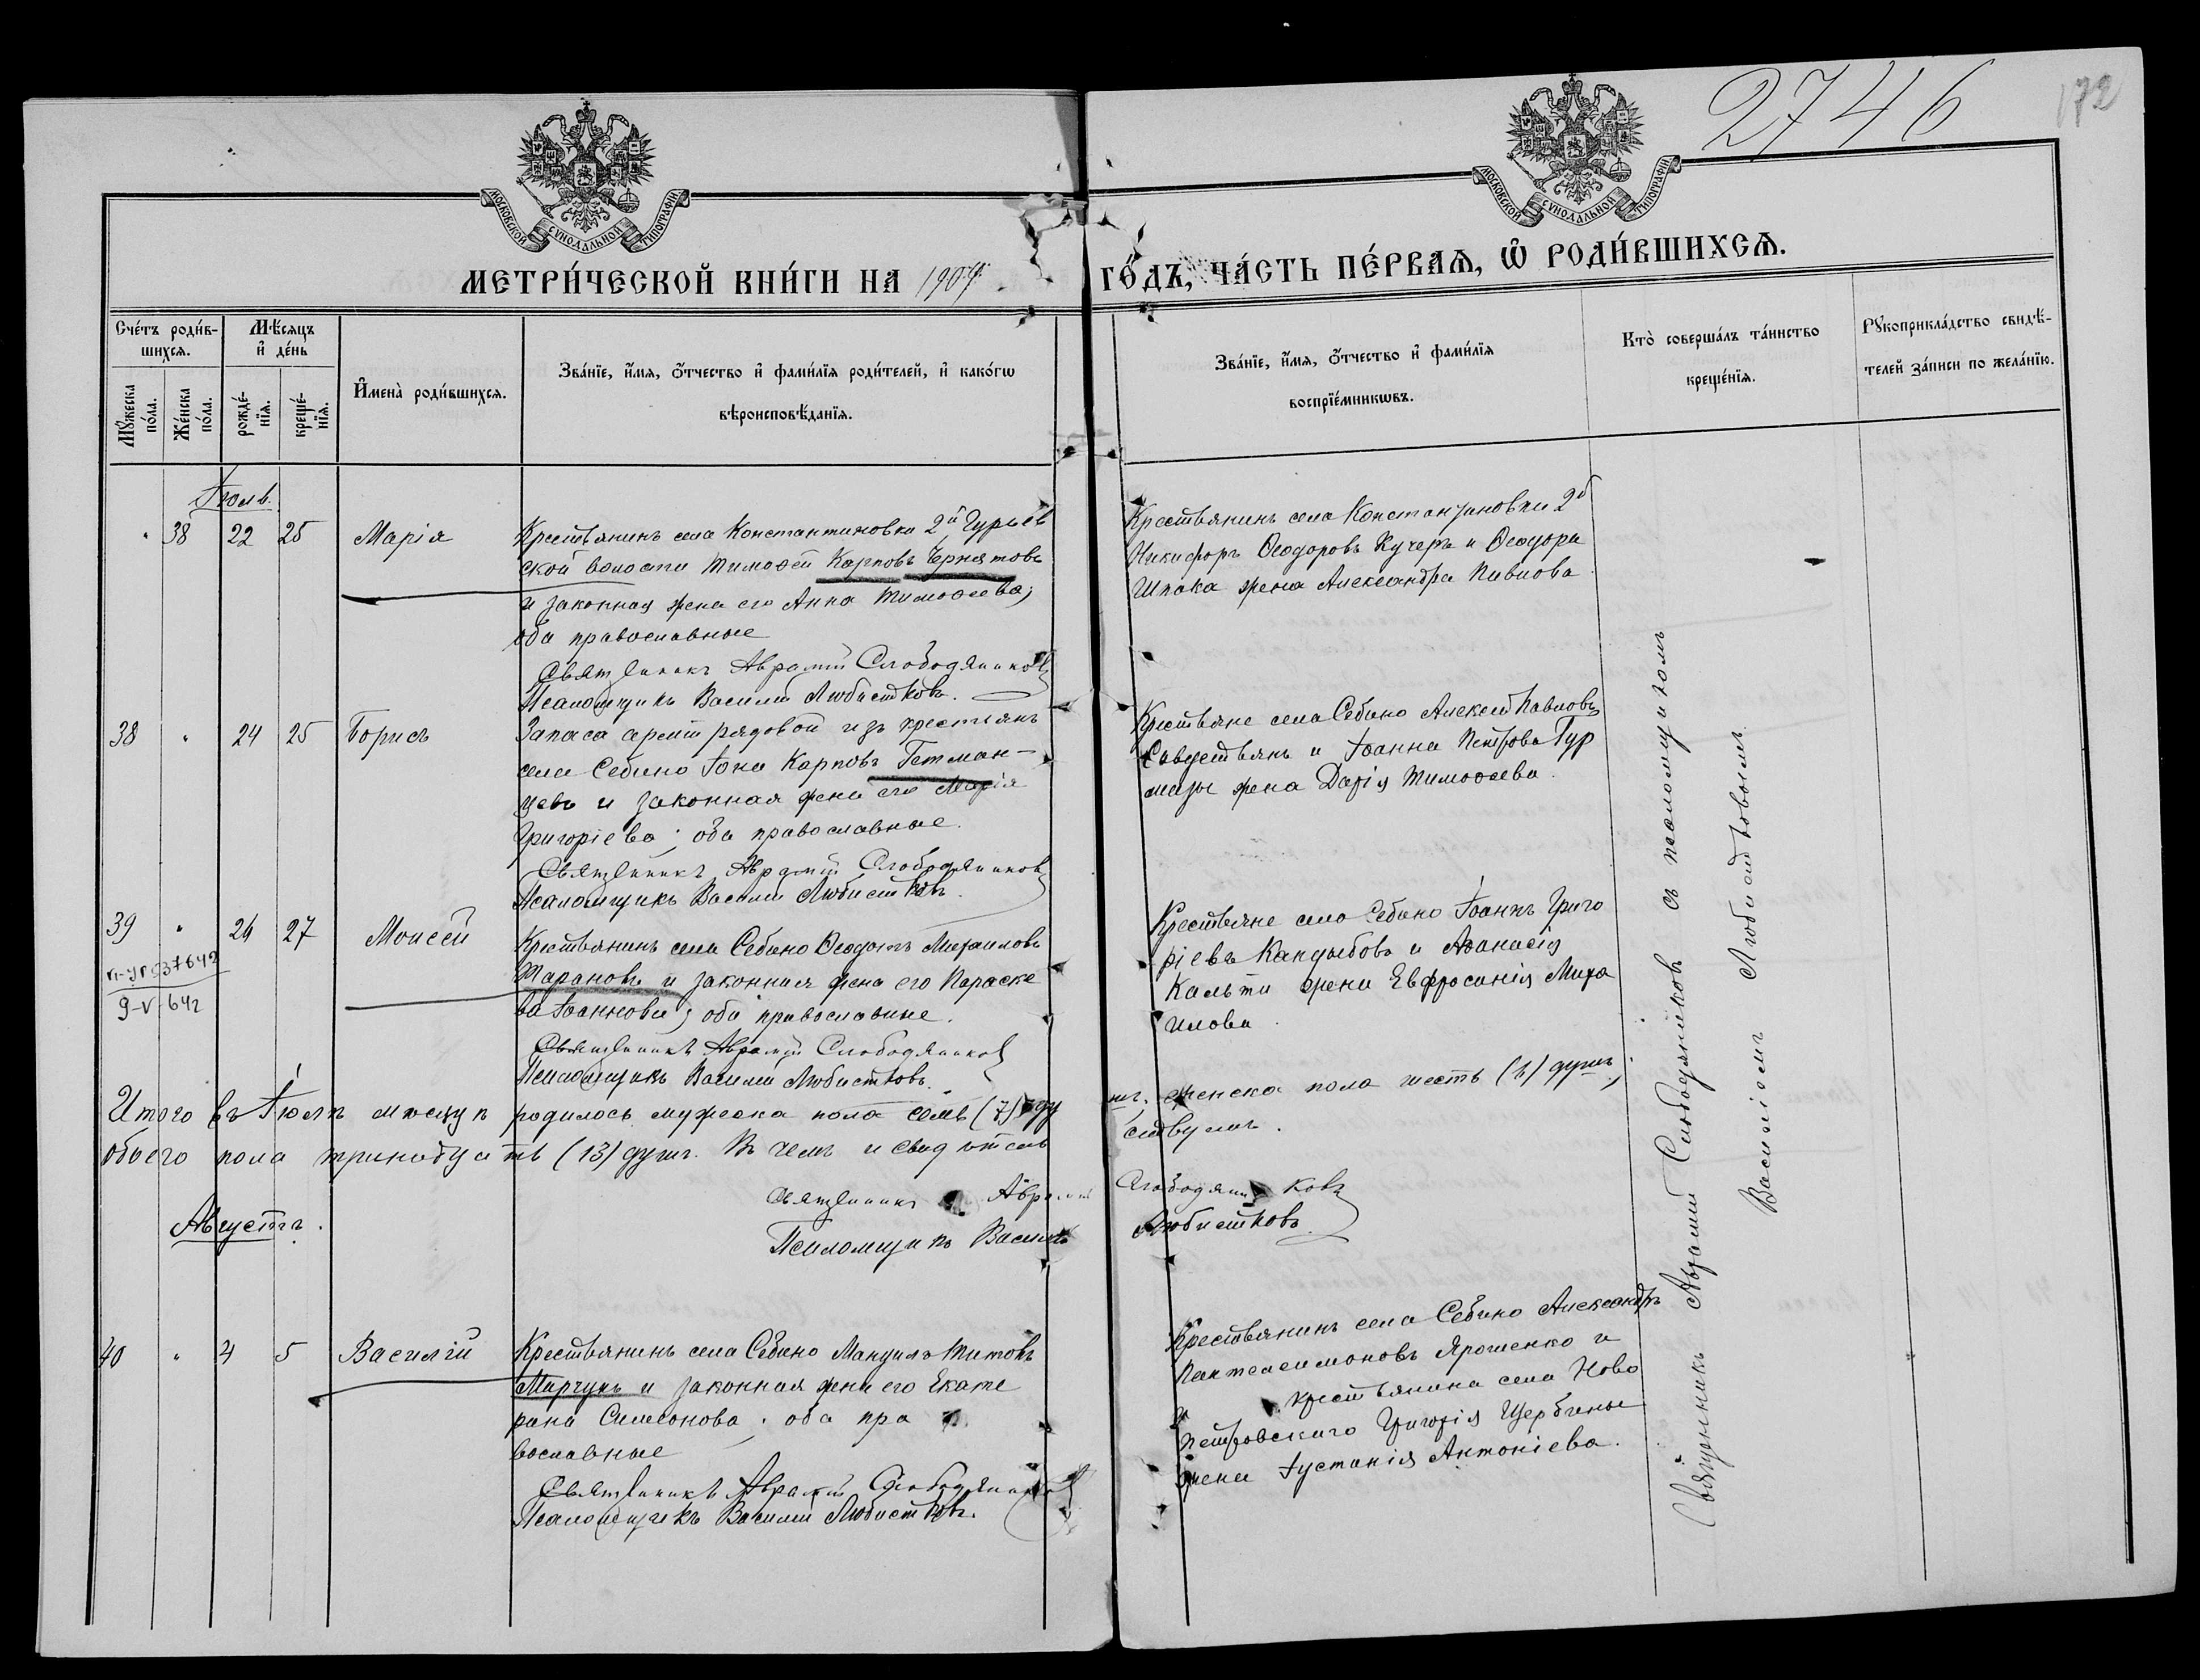 2746
172
МОСКОВСКОЙ СѴНОДАЛЬНОЙ ТИПОГРАФІИ
МОСКОВСКОЙ СѴНОДАЛЬНОЙ ТИПОГРАФІИ
МЕТРИ́ЧЕСКОЙ КНИ́ГИ НА 1909 ГО́ДЪ, ЧА́СТЬ ПЕ́РВАѦ, Ѡ҆ РОДИ́ВШИХСѦ.
Сче́тъ роди́в-
шихсѧ.
Мѣ́сѧцъ
и҆ де́нь
Мꙋ́жеска
по́ла.
Же́нска
по́ла.
рожде́-
нїѧ.
креще́-
нїѧ.
И҆мена̀ роди́вшихсѧ.
Зва́нїе, и҆́мѧ, ѻ҆́тчество и҆ фами́лїѧ роди́телей, и҆ како́гѡ
вѣроисповѣ́данїѧ.
Зва́нїе, и҆́мѧ, ѻ҆́тчество и҆ фами́лїѧ
воспрїе́мникѡвъ.
Кто̀ соверша́лъ та́инство
креще́нїѧ.
Рꙋкоприкла́дство свидѣ́-
телей за́писи по жела́нїю.
Іюль.
" 38 22 25 Марія
Крестьянинъ села Константиновки 2й Гурьев
ской волости Тимоѳей Карповъ Чернятовъ
и законная жена его Анна Тимоѳеева;
оба православные
Священникъ Аврамій Слободяниковъ
Псаломщикъ Василій Любистковъ.
Крестьянинъ села Константиновки 2й
Никифоръ Ѳеодоровъ Кучеръ и Ѳеодора
Шпака жена Александра Павлова
38 " 24 25 Борисъ
Запаса арміи рядовой изъ крестьянъ
села Себино Іона Карповъ Гетман-
цевъ и законная жена его Марія
Григоріева; оба православные.
Священникъ Аврамій Слободяниковъ
Псаломщикъ Василій Любистковъ.
Крестьяне села Себино Алексей Павловъ
Севастьянъ и Іоанна Петрова Гур
жена Дарія Тимоѳеева.
39 " 24 27 Моисей
9-V-64г
Крестьянинъ села Себино Ѳеодотъ Михаиловъ
Тарановъ и законная жена его Параске
ва Іоаннова; оба православные.
Священникъ Аврамій Слободяниковъ
Псаломщикъ Василій Любистковъ.
Крестьяне села Себино Іоаннъ Григо
ріевъ Кандыбовъ и Аѳанасія
жена Евфросинія Миха
илова.
Итого въ Іюлѣ мѣсяцѣ родилось мужеска пола семь (7) ду шъ, женска пола шесть (6) душъ,
обоего пола тринадцать (13) душъ. Въ чемъ и свидѣтель ствуемъ.
Священникъ Аврамій Слободяниковъ
Псаломщикъ Василій Любистковъ
Августъ.
40 " 4 5 Василій
Крестьянинъ села Себино Мануилъ Титовъ
Марчукъ и законная жена его Екате
рина Симеонова; оба пра
вославные
Священникъ Аврамій Слободяниковъ
Псаломщикъ Василій Любистковъ.
Крестьянинъ села Себино Александръ
Пантелеимоновъ Ярошенко и
крестьянина села Ново
петровскаго Григорія Щербины
жена Іустинія Антоніева.
Священникъ Аврамій Слободяниковъ съ псаломщикомъ
Василіемъ Любистковымъ